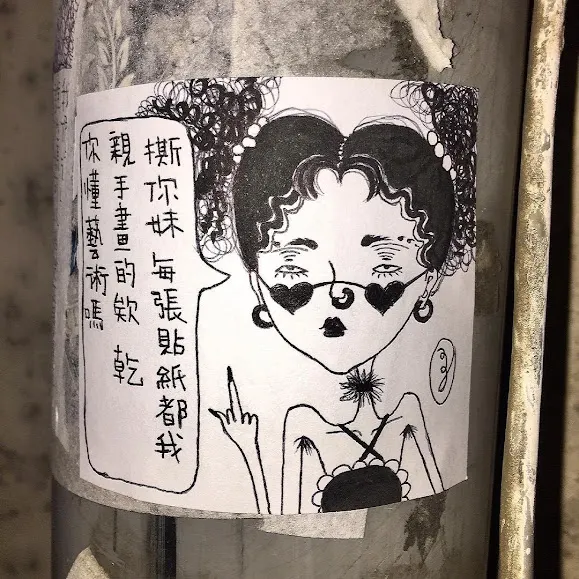 撕你妹 每張貼紙都我
親手畫的欸 乾
你懂藝術嗎